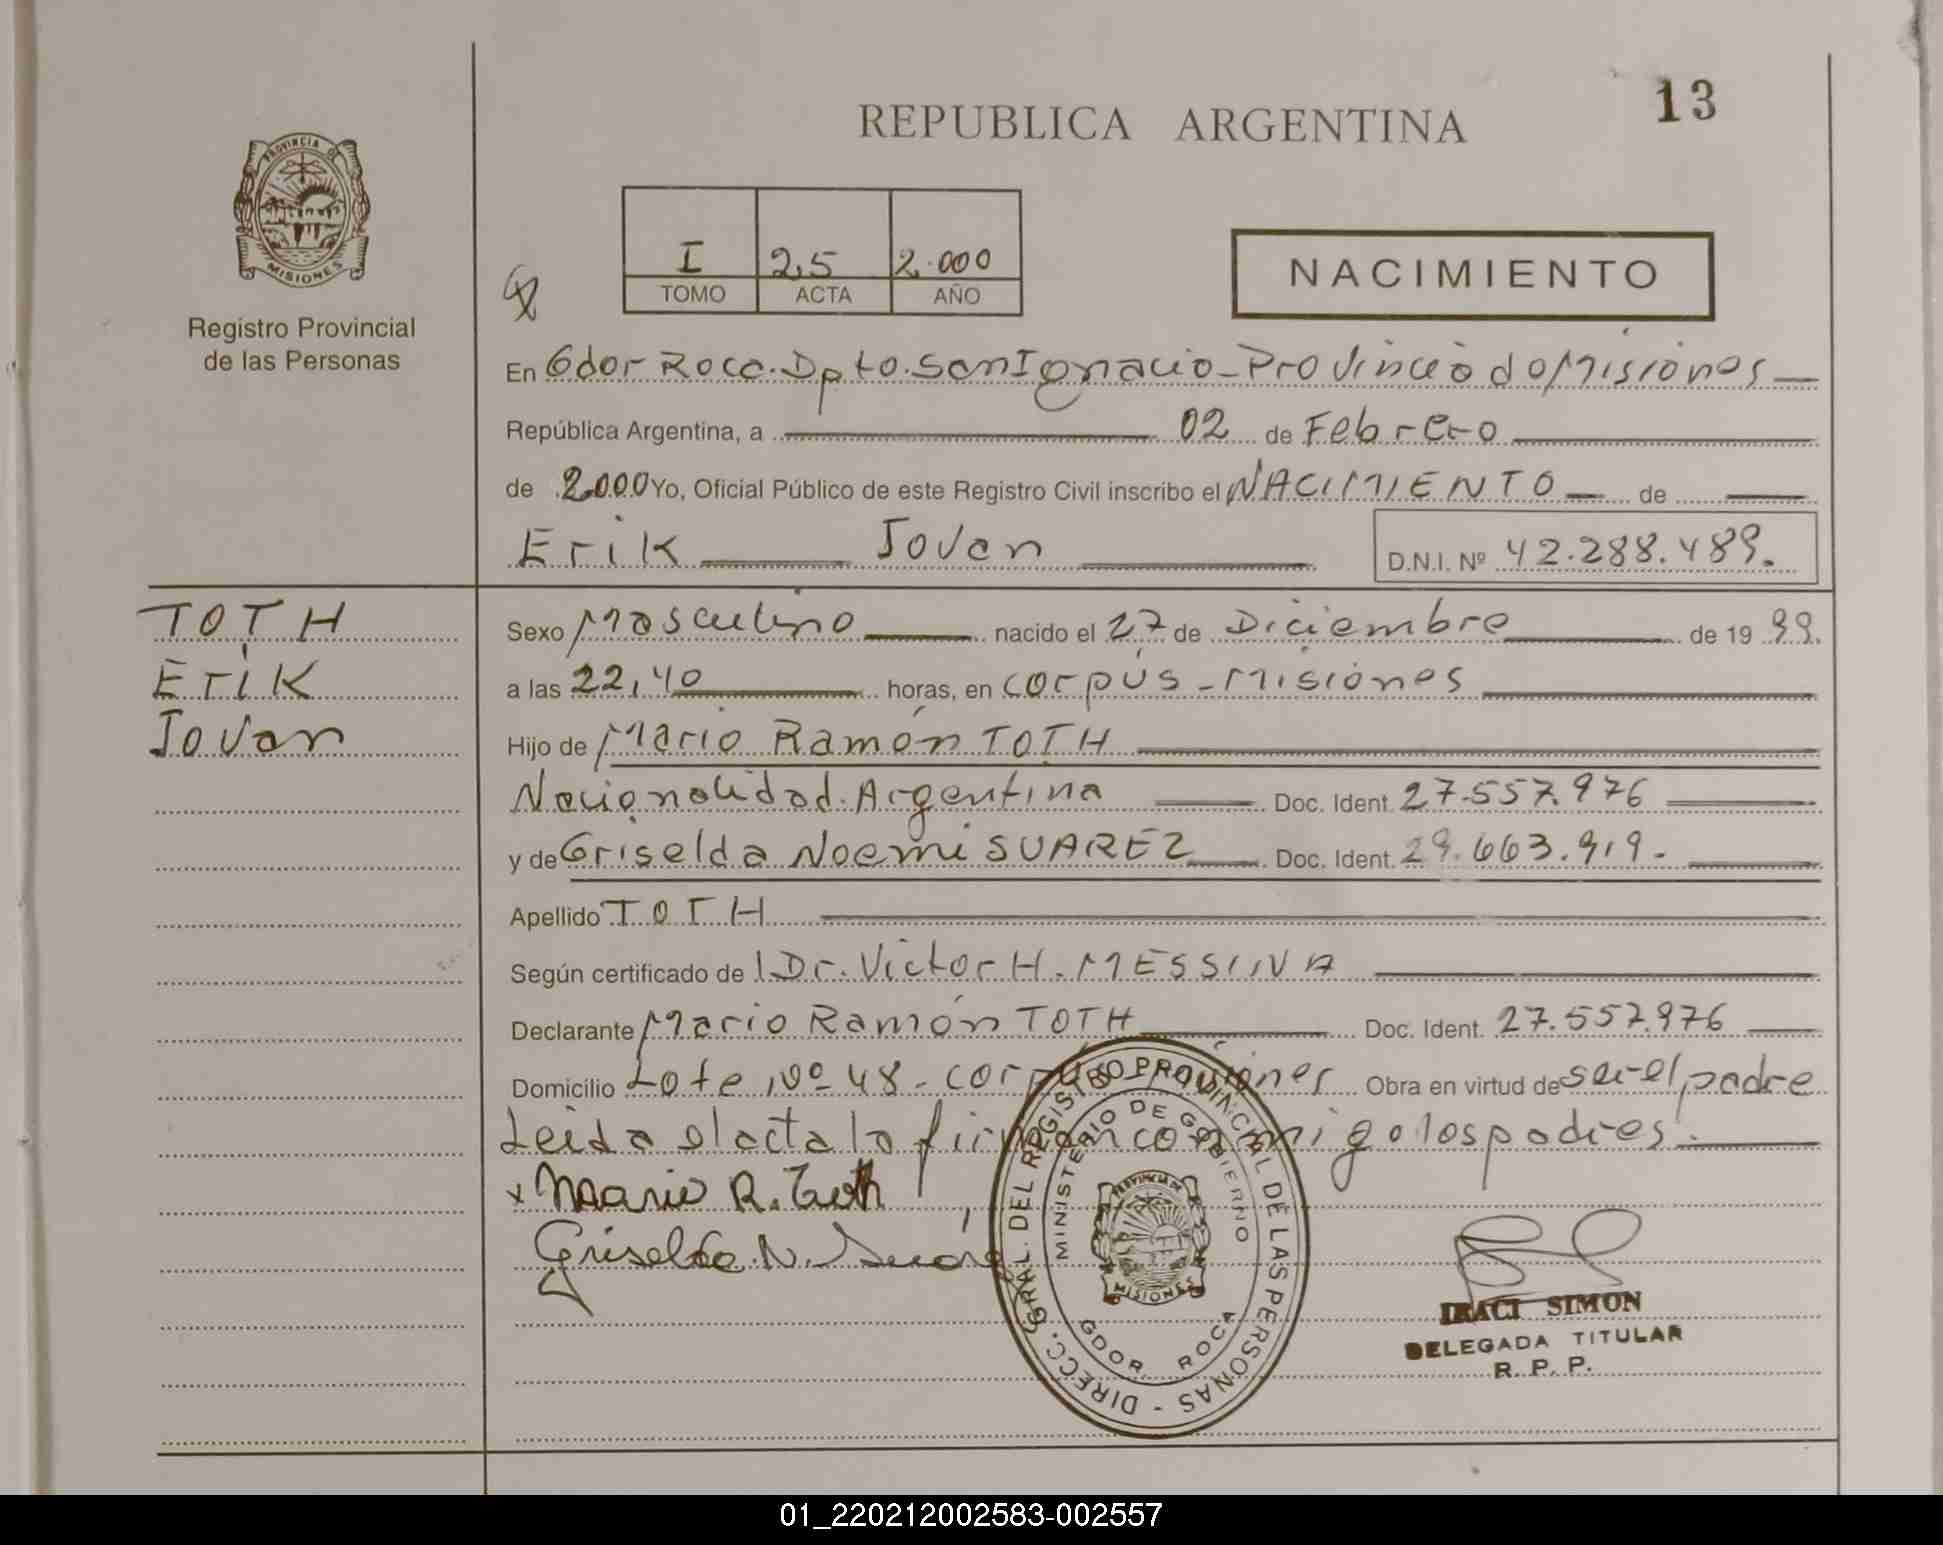 REPUBLICA ARGENTINA
13
PROVINCIA DE
MISIONES
Registro Provincial
de las Personas
I 25 2.000
TOMO ACTA AÑO
NACIMIENTO
En Gdor Roca. Dpto. San Ignacio - Provincia de Misiones
República Argentina, a 02 de Febrero
de 2.000 Yo, Oficial Público de este Registro Civil inscribo el NACIMIENTO de
Erik Jovan D.N.I. Nº 42.288.489.
TOTH
Erik
Jovan
Sexo Masculino nacido el 27 de Diciembre de 19 99.
a las 22,40 horas, en Corpus - Misiones
Hijo de Mario Ramón TOTH
Nacionalidad. Argentina Doc. Ident. 27.557.976
y de Griselda Noemi SUAREZ Doc. Ident. 29.663.919.
Apellido TOTH
Según certificado de Dr. Victor H. MESSINA
Declarante Mario Ramón TOTH Doc. Ident. 27.557.976
Domicilio Lote Nº 48 - Corpus Misiones Obra en virtud de ser el padre
Leida el acta la firman conmigo los padres.
x Mario R. Toth
Griselda N. Suárez
DIRECC. GRAL. DEL REGISTRO PROVINCIAL DE LAS PERSONAS -
MINISTERIO DE GOBIERNO
PROVINCIA DE
MISIONES
GDOR. ROCA
IRACI SIMON
DELEGADA TITULAR
R. P. P.
01_220212002583-002557